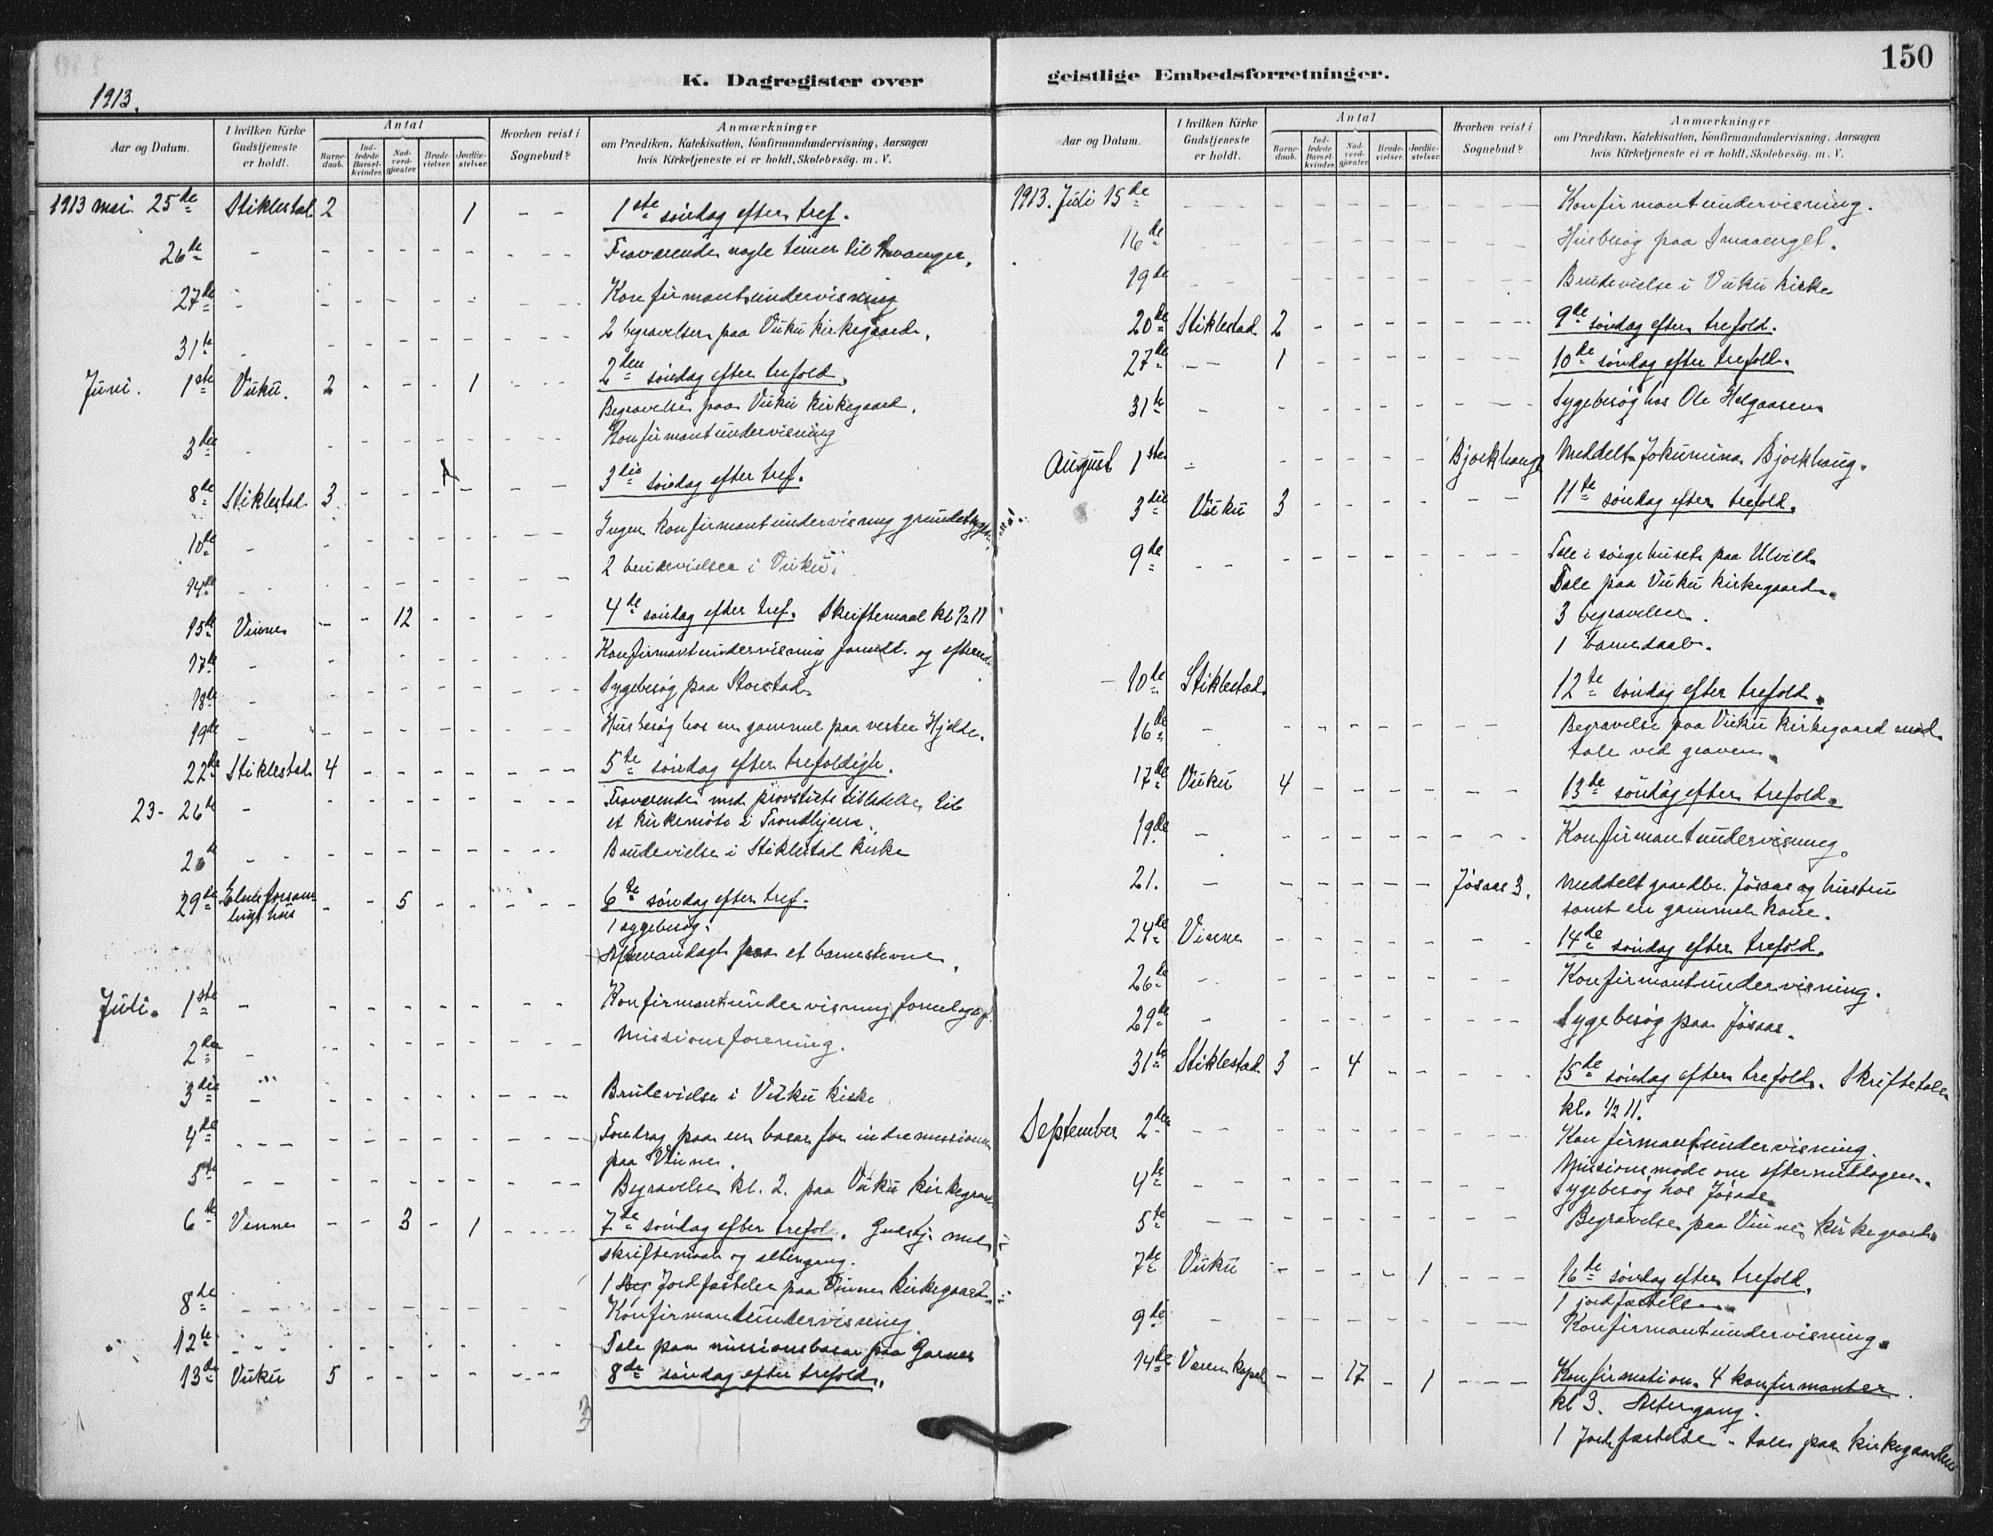 150
K. Dagregister over geistlige Embedsforretninger.
1913.
Aar og Datum.
I hvilken Kirke
Gudstjeneste
er holdt.
Antal
Barne-
daab.
Ind-
ledede
Barsel-
kvinder.
Nad-
verd-
gjæster.
Brude-
vielser.
Jordfæ-
stelser.
Hvorhen reist i
Sognebud?
Anmærkninger
om Prædiken, Katekisation, Konfirmandundervisning, Aarsagen
hvis Kirketjeneste ei er holdt, Skolebesög. m. V.
1913 mai 25de Stiklestad 2 1 - - 1ste söndag efter tref.
26de - Fraværende nogle timer til
27de - Konfirmantundervisning
31te - 2 begravelser paa Vüku kirkegaard.
Juni. 1ste Vüku. 2 - - - 1 - - - 2den söndag efter trefold.
Begravelse paa Vüku kirkegaard.
3die - Konfirmantundervisning
8de Stiklestad 3 - - - - - - 3die söndag efter tref.
10de - Ingen konfirmantundervisning grundet
14de - 2 brudevielser i Vüku.
15de Vinne - - 12 - - - - - 4de söndag efter tref. Skriftemaal kl 1/2 11
17de - Konfirmantundervisning formidd. og
18de - Sygebesög paa Storstad
19de - Husbesög hos en gammel paa vestre Hjelde.
22de Stiklestad 4 - - - - - - - 5te söndag efter trefoldigh.
23-26de - Fraværende med provstiets tilladelse til
et kirkemöte i Trondhjem.
- - Brudevielse i Stiklestad kirke
29de forsam-
lings hus - - 5 - - - - - 6te söndag efter tref.
1 sygebesög.
Aftenandagt paa et barnestevne.
Juli. 1ste - Konfirmantundervisning
2den - Missionsforening.
3die - Brudevielse i Vüku kirke
4de - Foredrag paa en basar for indremissionen
paa Vinne.
5te - Begravelse kl. 2. paa Vüku kirkegaard
6te Vinne - - 3 - 1 - - - 7de söndag efter trefol. Gudstj. med
skriftemaal og altergang.
1 Jordfæstelse paa Vinne kirkegaard.
8de - Konfirmantundervisning.
12te - Tale paa missionsbasar paa Garnes
13de Vüku 5 - - - - - - - 8de söndag efter trefold.
3
Aar og Datum.
I hvilken Kirke
Gudstjeneste
er holdt.
Antal
Barne-
daab.
Ind-
ledede
Barsel-
kvinder.
Nad-
verd-
gjæster.
Brude-
vielser.
Jordfæ-
stelser.
Hvorhen reist i
Sognebud?
Anmærkninger
om Prædiken, Katekisation, Konfirmandundervisning, Aarsagen
hvis Kirketjeneste ei er holdt, Skolebesög. m. V.
1913. Juli 15de - Konfirmantundervisning.
16de - Husbesög paa Smaaenget.
19de - Brudevielse i Vüku kirke
20de Stiklestad 2 - - - - - - - 9de söndag efter trefold.
27de - - 1 - - - - - - - 10de söndag efter trefold.
31te - Sygebesög hos Ole Helgaasen
August 1ste - Bjorkhaug Meddelt Jokumina Bjorkhaug.
3die Vüku 3 - - - - - - - 11te söndag efter trefold.
9de - - Tale i sörgehuset paa Ulvild
Tale paa Vüku kirkegaard.
3 begravelser.
1 barnedaab.
10de Stiklestad 12te söndag efter trefold.
16de - Begravelse paa Vüku kirkegaard med
tale ved graven.
17de Vüku 4 - - - - - - - 13de söndag efter trefold.
19de - Konfirmantundervisning.
21. - Jösaas 3. Meddelt gaardbr. Jösaas og hustru
samt en gammel kone.
24de Vinne - - - - - - - 14de söndag efter trefold.
26de - Konfirmantundervisning.
29de - Sygebesög paa Jösaas.
31te Stiklestad 3 - 4 - - - - - 15de söndag efter trefold. Skriftetale
kl. 1/2 11.
September 2den - - Konfirmantundervisning.
Missionsmöde om eftermiddagen.
4de - Sygebesög hos Jösaas.
5te - Begravelse paa Vinne kirkegaard.
7de Vüku - - - - 1 - - - 16de söndag efter trefold.
1 jordfæstelse.
9de - Konfirmantundervisning.
14de Væren kapel - - 17 - 1 - - - Konfirmation. 4 konfirmanter.
kl 3. Altergang.
1 Jordfæstelse - tale paa kirkegaarden